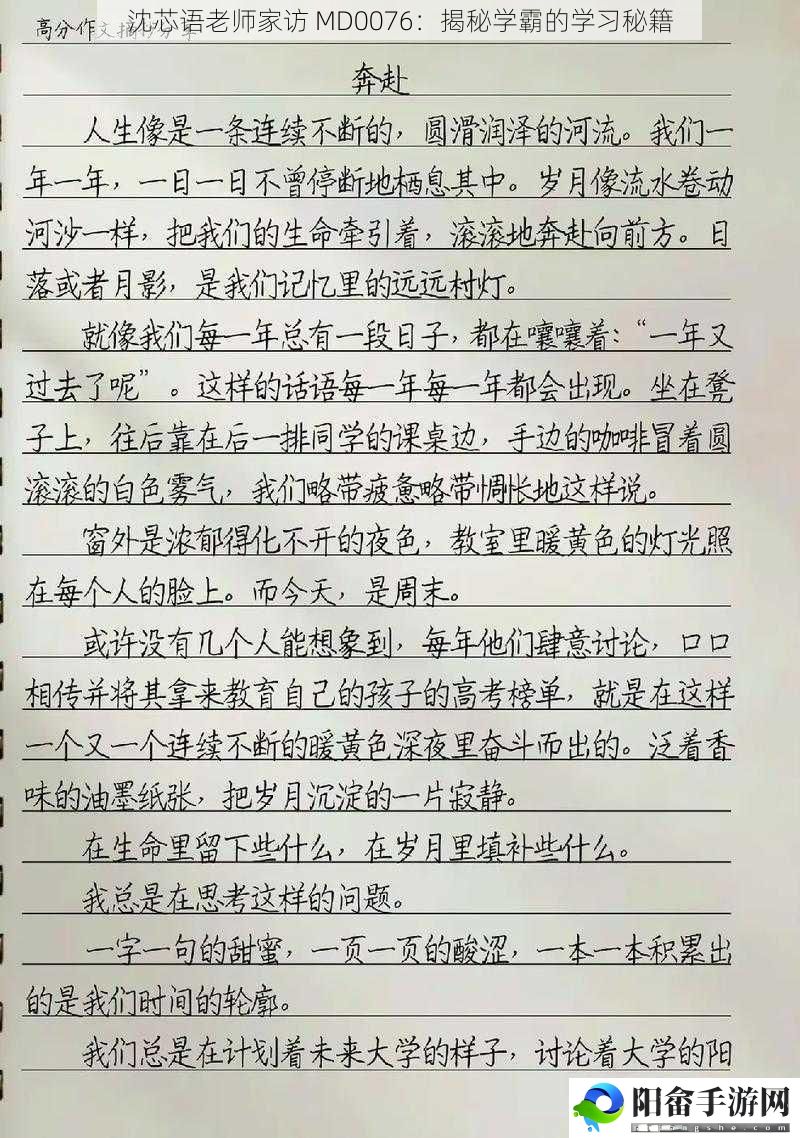 沈芯语老师家访 MD0076：揭秘学霸的学习秘籍
高分作文摘抄分享
奔赴
人生像是一条连续不断的，圆滑润泽的河流。我们一
年一年，一日一日不曾停断地栖息其中。岁月像流水卷动
河沙一样，把我们的生命牵引着，滚滚地奔赴向前方。日
落或者月影，是我们记忆里的远远村灯。
就像我们每一年总有一段日子，都在嚷嚷着：“一年又
过去了呢”。这样的话语每一年每一年都会出现。坐在凳
子上，往后靠在后一排同学的课桌边，手边的咖啡冒着圆
滚滚的白色雾气，我们略带疲惫略带惆怅地这样说。
窗外是浓郁得化不开的夜色，教室里暖黄色的灯光照
在每个人的脸上。而今天，是周末。
或许没有几个人能想象到，每年他们肆意讨论，口口
相传并将其拿来教育自己的孩子的高考榜单，就是在这样
一个又一个连续不断的暖黄色深夜里奋斗而出的。泛着香
味的油墨纸张，把岁月沉淀的一片寂静。
在生命里留下些什么，在岁月里填补些什么。
我总是在思考这样的问题。
一字一句的甜蜜，一页一页的酸涩，一本一本积累出
的是我们时间的轮廓。
我们总是在计划着未来大学的样子，讨论着大学的阳
阳畲手游网